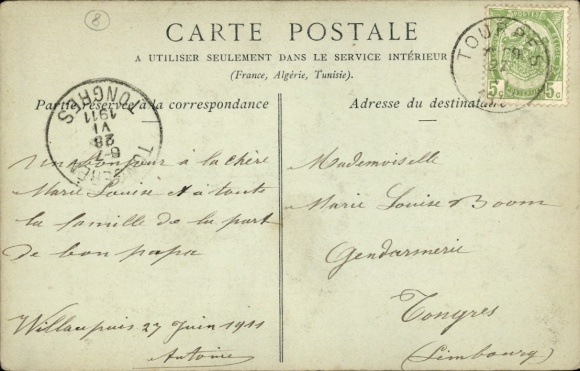 8
CARTE POSTALE
A UTILISER SEULEMENT DANS LE SERVICE INTÉRIEUR
(France, Algérie, Tunisie).
Partie réservée à la correspondance
Adresse du destinataire
TOURPES
5c 5c
TONGRES
1911
VI
28
6-7
TONGEREN
Un bonjour à la chère
Marie Louise et à toute
la famille de la part
de bon papa
Willaupuis 27 Juin 1911
Antoine
Mademoiselle
Marie Louise Boom
Gendarmerie
Tongres
(Limbourg)